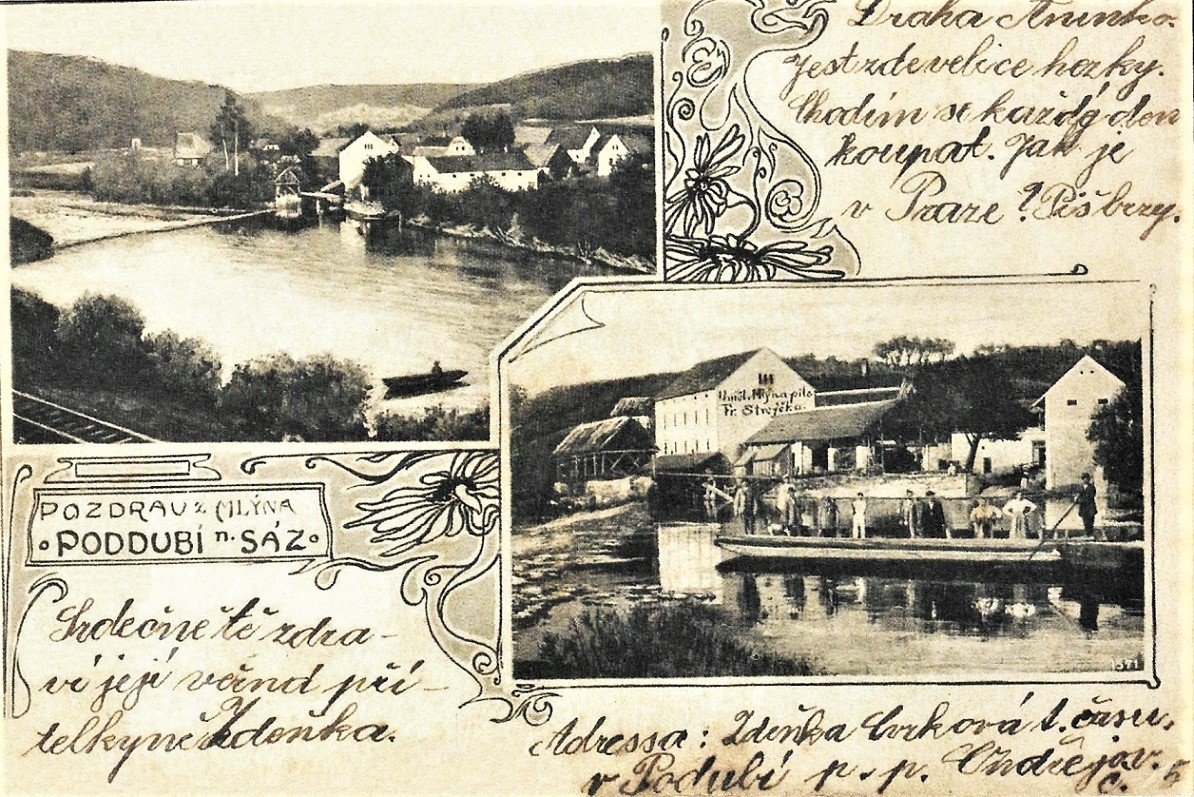 Draha Aninko.
Jest zde velice hezky.
Chodim se každý den
koupat. Jak je
v Praze? Piš brzy.
Uměl. Mlýn a pila
Fr. Strejčka.
POZDRAV z MLÝNA
PODDUBÍ n. SÁZ.
Srdečně tě zdra-
ví její věrná pří-
telkyně Zdeňka.
1571
Adressa: Zdeňka Cvrková t. času.
v Podubí p. p. Ondřejov.
č. 5